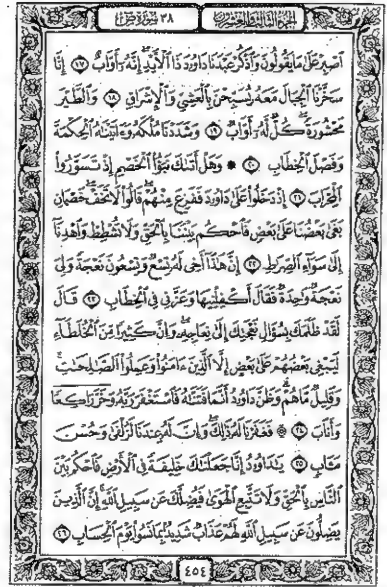 الجزء الثالث والعشرون ٣٨ سورة ص
ٱصْبِرْ عَلَىٰ مَا يَقُولُونَ وَٱذْكُرْ عَبْدَنَا دَاوُۥدَ ذَا ٱلْأَيْدِ ۖ إِنَّهُۥٓ أَوَّابٌ ١٧ إِنَّا
سَخَّرْنَا ٱلْجِبَالَ مَعَهُۥ يُسَبِّحْنَ بِٱلْعَشِىِّ وَٱلْإِشْرَاقِ ١٨ وَٱلطَّيْرَ
مَحْشُورَةً ۖ كُلٌّ لَّهُۥٓ أَوَّابٌ ١٩ وَشَدَدْنَا مُلْكَهُۥ وَءَاتَيْنَٰهُ ٱلْحِكْمَةَ
وَفَصْلَ ٱلْخِطَابِ ٢٠ ۞ وَهَلْ أَتَىٰكَ نَبَؤُا۟ ٱلْخَصْمِ إِذْ تَسَوَّرُوا۟
ٱلْمِحْرَابَ ٢١ إِذْ دَخَلُوا۟ عَلَىٰ دَاوُۥدَ فَفَزِعَ مِنْهُمْ ۖ قَالُوا۟ لَا تَخَفْ ۖ خَصْمَانِ
بَغَىٰ بَعْضُنَا عَلَىٰ بَعْضٍ فَٱحْكُم بَيْنَنَا بِٱلْحَقِّ وَلَا تُشْطِطْ وَٱهْدِنَآ
إِلَىٰ سَوَآءِ ٱلصِّرَٰطِ ٢٢ إِنَّ هَٰذَآ أَخِى لَهُۥ تِسْعٌ وَتِسْعُونَ نَعْجَةً وَلِىَ
نَعْجَةٌ وَٰحِدَةٌ فَقَالَ أَكْفِلْنِيهَا وَعَزَّنِى فِى ٱلْخِطَابِ ٢٣ قَالَ
لَقَدْ ظَلَمَكَ بِسُؤَالِ نَعْجَتِكَ إِلَىٰ نِعَاجِهِۦ ۖ وَإِنَّ كَثِيرًا مِّنَ ٱلْخُلَطَآءِ
لَيَبْغِى بَعْضُهُمْ عَلَىٰ بَعْضٍ إِلَّا ٱلَّذِينَ ءَامَنُوا۟ وَعَمِلُوا۟ ٱلصَّٰلِحَٰتِ
وَقَلِيلٌ مَّا هُمْ ۗ وَظَنَّ دَاوُۥدُ أَنَّمَا فَتَنَّٰهُ فَٱسْتَغْفَرَ رَبَّهُۥ وَخَرَّ رَاكِعًا
وَأَنَابَ ٢٤ ۩ فَغَفَرْنَا لَهُۥ ذَٰلِكَ ۖ وَإِنَّ لَهُۥ عِندَنَا لَزُلْفَىٰ وَحُسْنَ
مَـَٔابٍ ٢٥ يَٰدَاوُۥدُ إِنَّا جَعَلْنَٰكَ خَلِيفَةً فِى ٱلْأَرْضِ فَٱحْكُم بَيْنَ
ٱلنَّاسِ بِٱلْحَقِّ وَلَا تَتَّبِعِ ٱلْهَوَىٰ فَيُضِلَّكَ عَن سَبِيلِ ٱللَّهِ ۚ إِنَّ ٱلَّذِينَ
يَضِلُّونَ عَن سَبِيلِ ٱللَّهِ لَهُمْ عَذَابٌ شَدِيدٌۢ بِمَا نَسُوا۟ يَوْمَ ٱلْحِسَابِ ٢٦
٤٥٤